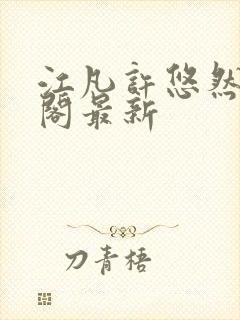 江凡許悠然
閣最新
刀青梧